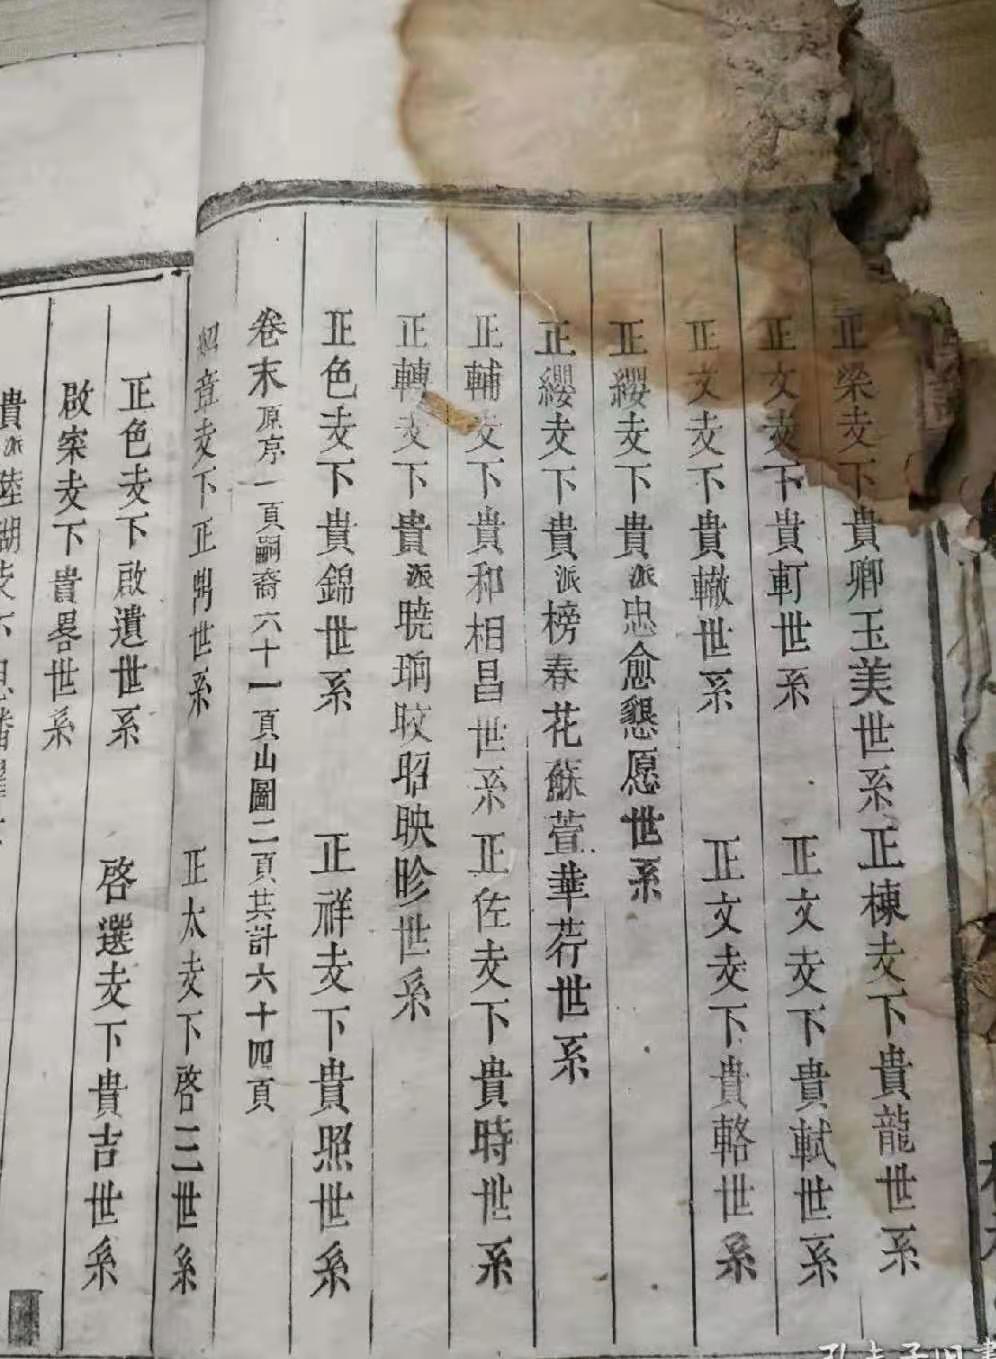 正樑支下貴卿玉美世系正棟支下貴龍世系
正文支下貴軒世系 正文支下貴軾世系
正文支下貴轍世系 正文支下貴輅世系
正纓支下貴派忠愈懇愿世系
正纓支下貴派榜春花蘇萱華荇世系
正輔支下貴和相昌世系正佐支下貴時世系
正轉支下貴派曉晌晈昭映昣世系
正色支下貴錦世系 正祥支下貴照世系
卷末原序一頁嗣裔六十一頁山圖二頁共計六十四頁
紹章支下正鼎世系 正太支下啓三世系
正色支下啟遺世系 啓選支下貴吉世系
啟寀支下貴畧世系
貴派陸湖支下思
孔夫子旧書